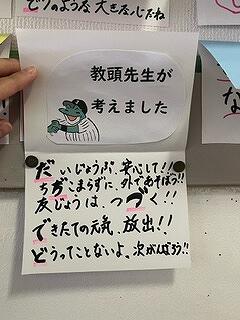 でりのような大きな心だね
教頭先生が
考えました
だいじょうぶ、安心して!!
ちぢこまらずに、外であそぼう!!
友じょうは、つづく!!
できたての元気、放出!!
どうってことないよ、次がんばろう!!